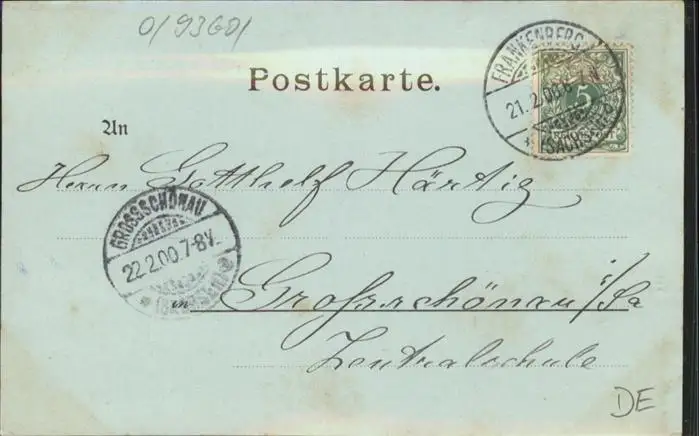 0/9360/
FRANKENBERG
21.2.00.6-7N.
(SACHSEN)
5
Postkarte.
An
Herrn Gotthelf Härtig
GROSSSCHÖNAU
22.2.00.7-8V.
(SACHSEN)
in Grossschönau i/Sa
Zentralschule
DE